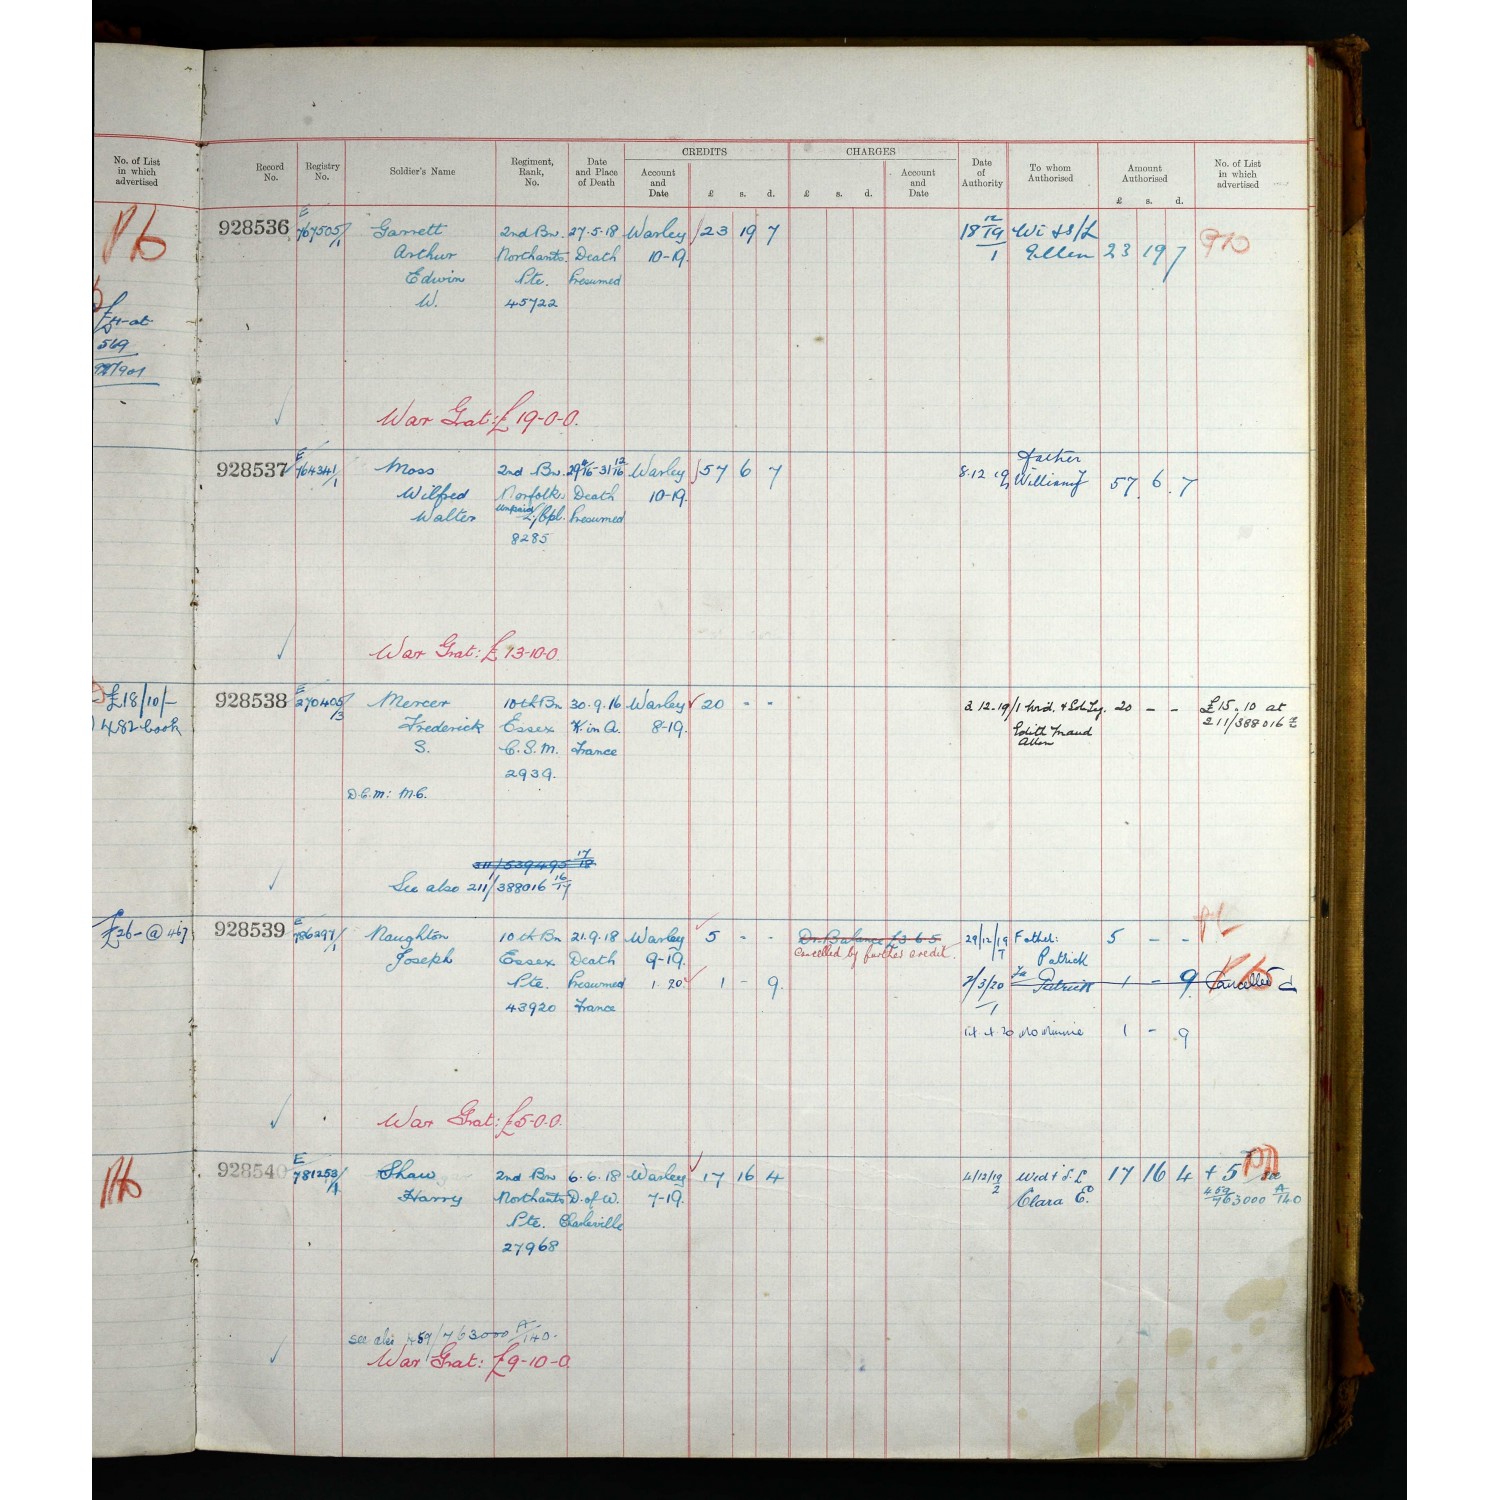 No. of List
in which
advertised
Record
No.
Registry
No.
Soldier's Name
Regiment,
Rank,
No.
Date
and Place
of Death
CREDITS
Account
and
Date
£ s. d.
CHARGES
£ s. d.
Account
and
Date
Date
of
Authority
To whom
Authorised
Amount
Authorised
£ s. d.
No. of List
in which
advertised
569
£18/10/-
482 book
£26-@ 467
928536 E 767505/1 Garrett 2nd Bn. 27.5.18 Warley 23 19 7 18 12/19 Wi & S/L
Arthur Northants Death 10-19. 1 Ellen 23 19 7
Edwin Pte. Presumed
W. 45722
War Grat: £19-0-0.
928537 E 764341/1 Moss 2nd Bn. Warley 57 6 7 8.12.19 Father
Wilfred Norfolk Death 10-19. William J 57 6 7
Walter unpaid L/Cpl. Presumed
8285
War Grat: £13-10-0.
928538 E 270405/3 Mercer 10th Bn 30.9.16 Warley 20 - - 2.12.19/1 20 - - £15.10 at
Frederick Essex K. in A. 8-19. Edith Maud 211/388016
S. C.S.M. France
2939.
D.C.M: M.C.
See also 211/388016 16/17
928539 E 786297/1 Naughton 10th Bn 21.9.18 Warley 5 - - Dr. Balance £3 6 5 29/12/19 Father: 5 - -
Joseph Essex Death 9-19. Cancelled by further credit. Patrick
Pte. Presumed 1 20 1 - 9. 2/3/20 Fa Patrick 1 - 9 Cancelled
43920 France 1
Mo Minnie 1 - 9
War Grat: £5-0-0.
928540 E 781253/1 Shaw 2nd Bn 6.6.18 Warley 17 16 4 Wid & S.L 17 16 4 + 5
Harry Northants D. of W. 7-19. 2 Clara E. 459/763000 A/140
Pte. Charleville
27968
see also 459/763000 A/140.
War Grat: £9-10-0.